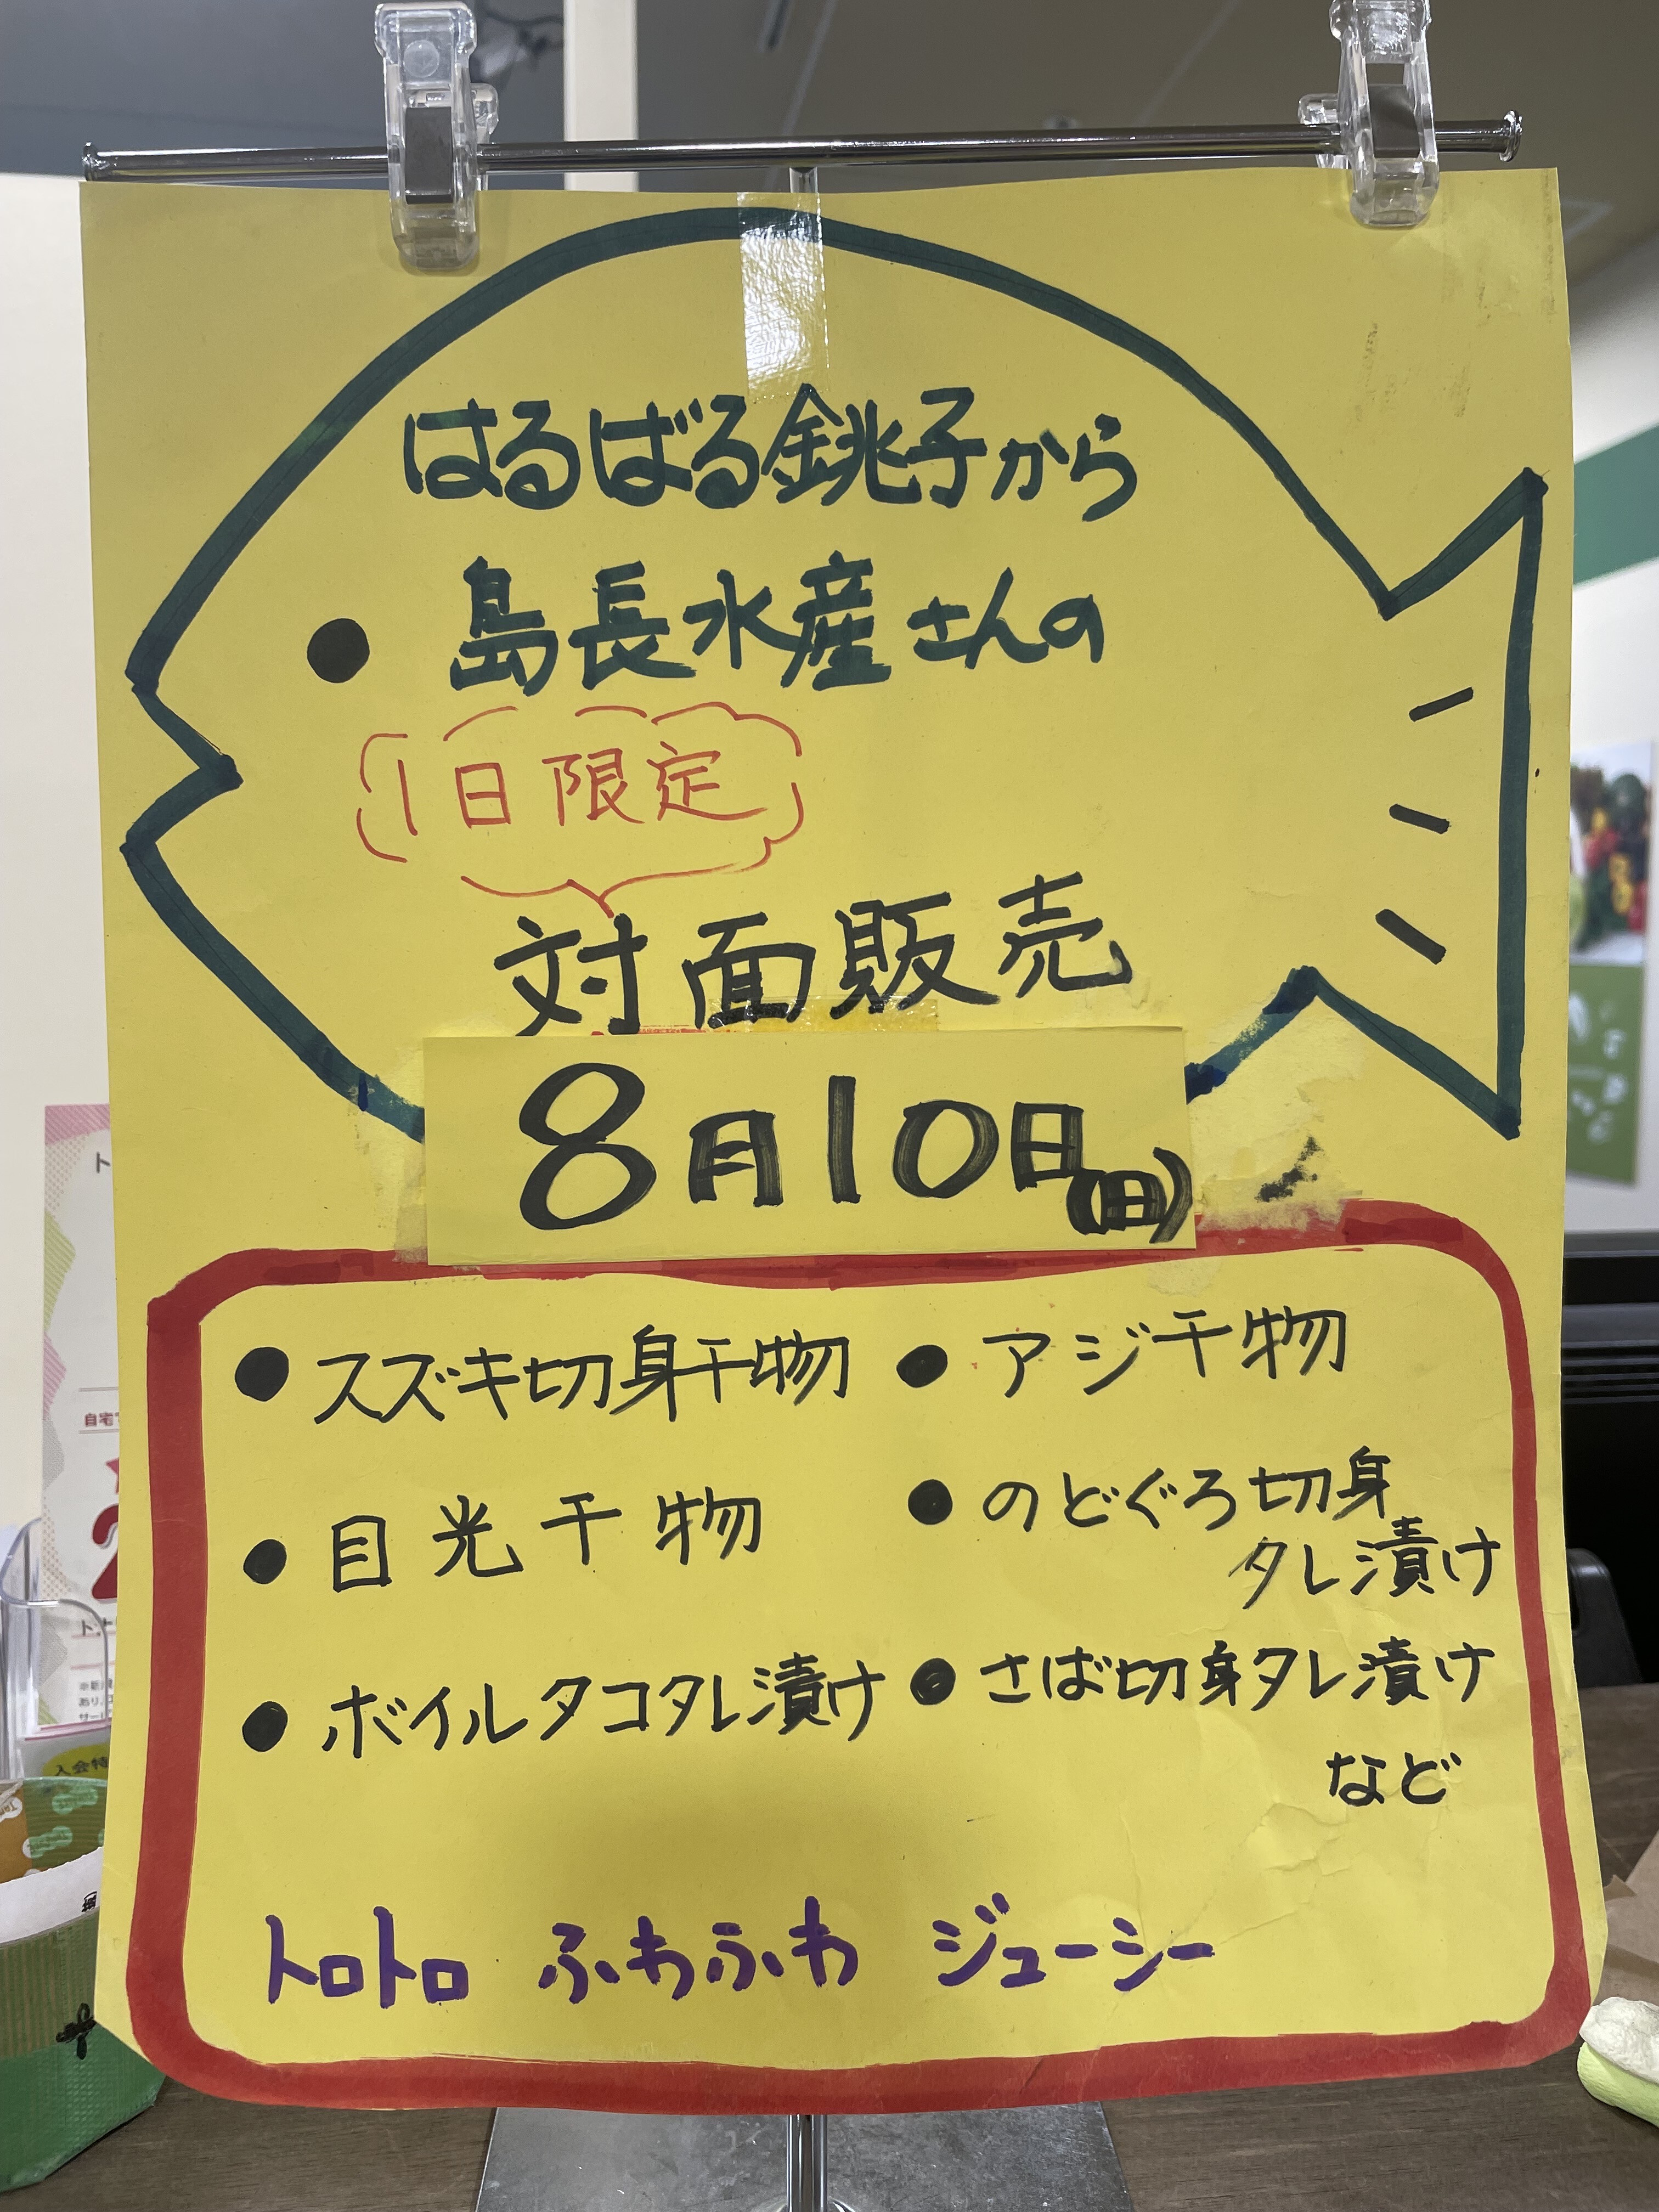 はるばる銚子から
島長水産さんの
1日限定
対面販売
8月10日(日)
●スズキ切身干物
●アジ干物
●目光干物
●のどぐろ切身
タレ漬け
●ボイルタコタレ漬け
●さば切身タレ漬け
など
トロトロ ふわふわ ジューシー
自宅
入会特